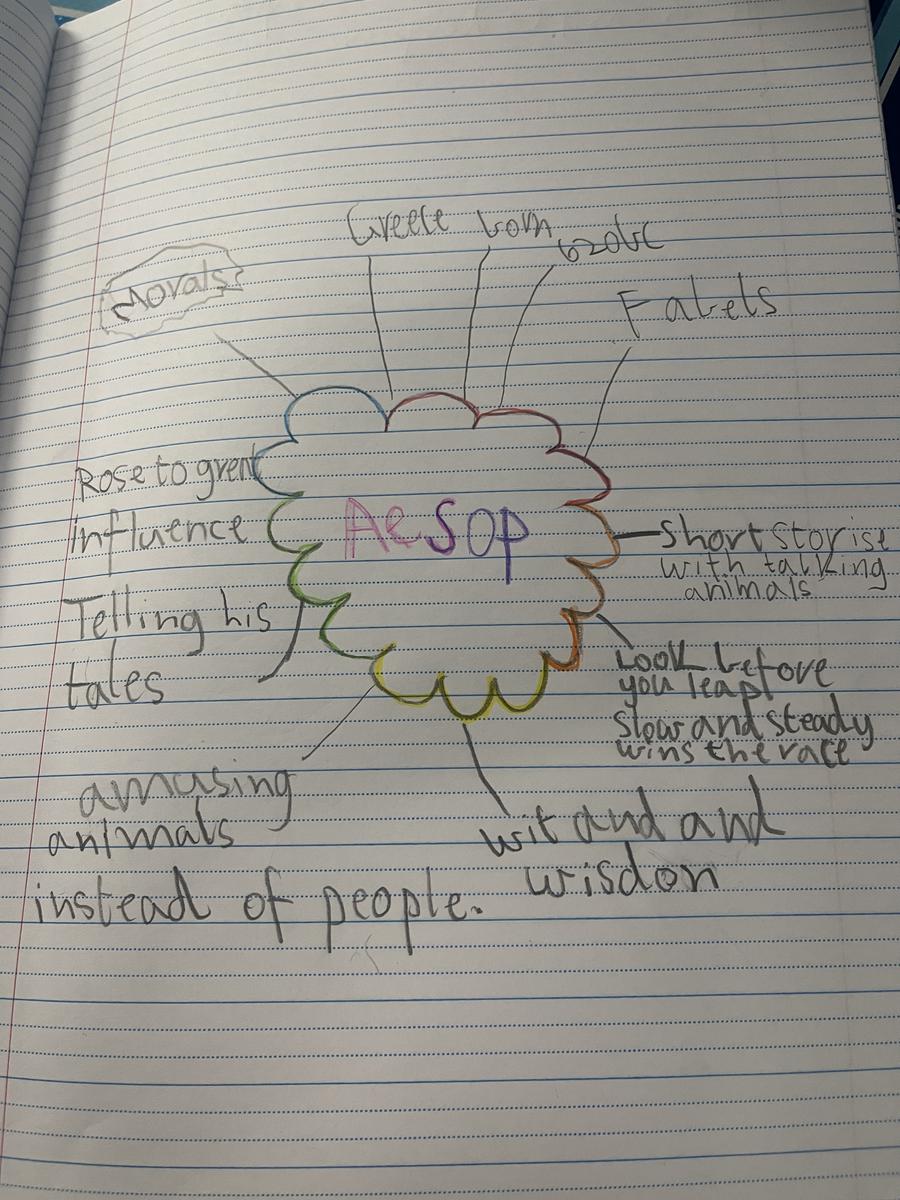 Greece born
620bc
Morals
Fabels
Rose to great
influence
Aesop
Short storise
with talking
animals
Telling his
tales
Look before
you leap
slow and steady
wins the race
amusing
animals
instead of people.
wit and and
wisdon